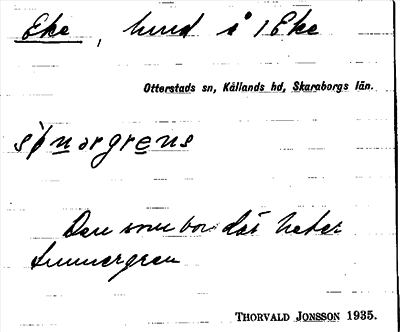 Eke, hmd å 1 Eke
Otterstads sn, Kållands hd, Skaraborgs län.
Den som bor där heter
THORVALD JONSSON 1935.